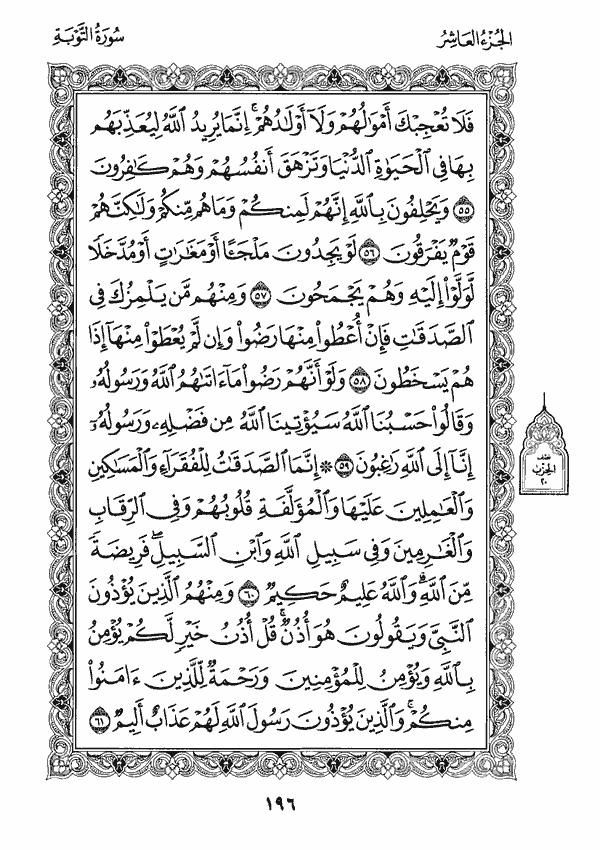 الجُزءُ العَاشِرُ
سُورَةُ التَّوبَةِ
فَلَا تُعْجِبْكَ أَمْوَٰلُهُمْ وَلَآ أَوْلَٰدُهُمْ ۚ إِنَّمَا يُرِيدُ ٱللَّهُ لِيُعَذِّبَهُم
بِهَا فِى ٱلْحَيَوٰةِ ٱلدُّنْيَا وَتَزْهَقَ أَنفُسُهُمْ وَهُمْ كَٰفِرُونَ
٥٥ وَيَحْلِفُونَ بِٱللَّهِ إِنَّهُمْ لَمِنكُمْ وَمَا هُم مِّنكُمْ وَلَٰكِنَّهُمْ
قَوْمٌ يَفْرَقُونَ ٥٦ لَوْ يَجِدُونَ مَلْجَـًٔا أَوْ مَغَٰرَٰتٍ أَوْ مُدَّخَلًا
لَّوَلَّوْا۟ إِلَيْهِ وَهُمْ يَجْمَحُونَ ٥٧ وَمِنْهُم مَّن يَلْمِزُكَ فِى
ٱلصَّدَقَٰتِ فَإِنْ أُعْطُوا۟ مِنْهَا رَضُوا۟ وَإِن لَّمْ يُعْطَوْا۟ مِنْهَآ إِذَا
هُمْ يَسْخَطُونَ ٥٨ وَلَوْ أَنَّهُمْ رَضُوا۟ مَآ ءَاتَىٰهُمُ ٱللَّهُ وَرَسُولُهُۥ
وَقَالُوا۟ حَسْبُنَا ٱللَّهُ سَيُؤْتِينَا ٱللَّهُ مِن فَضْلِهِۦ وَرَسُولُهُۥٓ
إِنَّآ إِلَى ٱللَّهِ رَٰغِبُونَ ٥٩ ۞ إِنَّمَا ٱلصَّدَقَٰتُ لِلْفُقَرَآءِ وَٱلْمَسَٰكِينِ
وَٱلْعَٰمِلِينَ عَلَيْهَا وَٱلْمُؤَلَّفَةِ قُلُوبُهُمْ وَفِى ٱلرِّقَابِ
وَٱلْغَٰرِمِينَ وَفِى سَبِيلِ ٱللَّهِ وَٱبْنِ ٱلسَّبِيلِ ۖ فَرِيضَةً
مِّنَ ٱللَّهِ ۗ وَٱللَّهُ عَلِيمٌ حَكِيمٌ ٦٠ وَمِنْهُمُ ٱلَّذِينَ يُؤْذُونَ
ٱلنَّبِىَّ وَيَقُولُونَ هُوَ أُذُنٌ ۚ قُلْ أُذُنُ خَيْرٍ لَّكُمْ يُؤْمِنُ
بِٱللَّهِ وَيُؤْمِنُ لِلْمُؤْمِنِينَ وَرَحْمَةٌ لِّلَّذِينَ ءَامَنُوا۟
مِنكُمْ ۚ وَٱلَّذِينَ يُؤْذُونَ رَسُولَ ٱللَّهِ لَهُمْ عَذَابٌ أَلِيمٌ ٦١
نصف
الحزب
٢٠
١٩٦